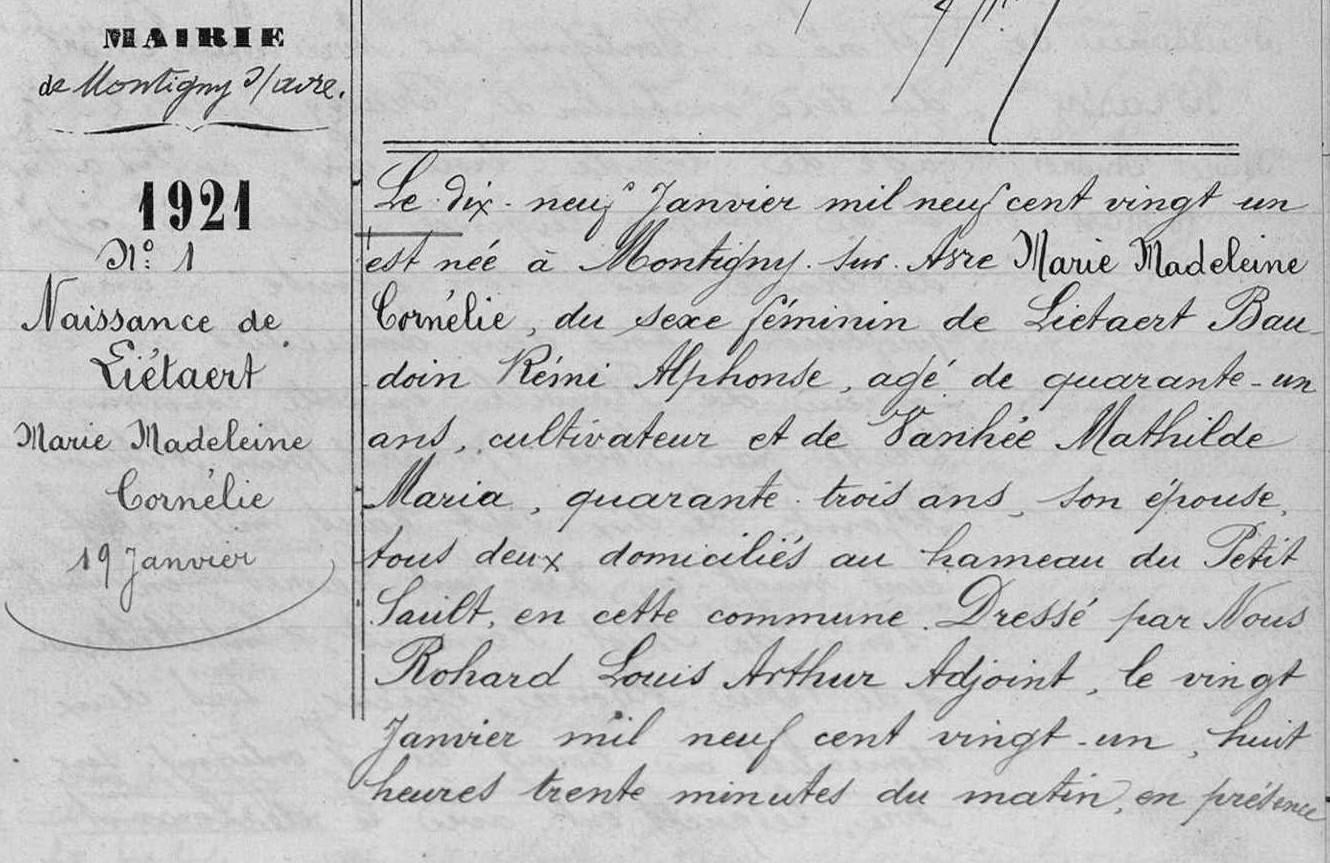 MAIRIE
de Montigny s/avre.
1921
No: 1
Naissance de
Liétaert
Marie Madeleine
Cornélie
19 Janvier
Le dix-neuf Janvier mil neuf cent vingt un
est née à Montigny-sur-Avre Marie Madeleine
Cornélie, du sexe féminin de Liétaert Bau-
doin Rémi Alphonse, agé de quarante-un
ans, cultivateur et de Vanhée Mathilde
Maria, quarante-trois ans, son épouse,
tous deux domiciliés au hameau du Petit
Sault, en cette commune. Dressé par Nous
Rohard Louis Arthur Adjoint, le vingt
Janvier mil neuf cent vingt-un, huit
heures trente minutes du matin, en présence